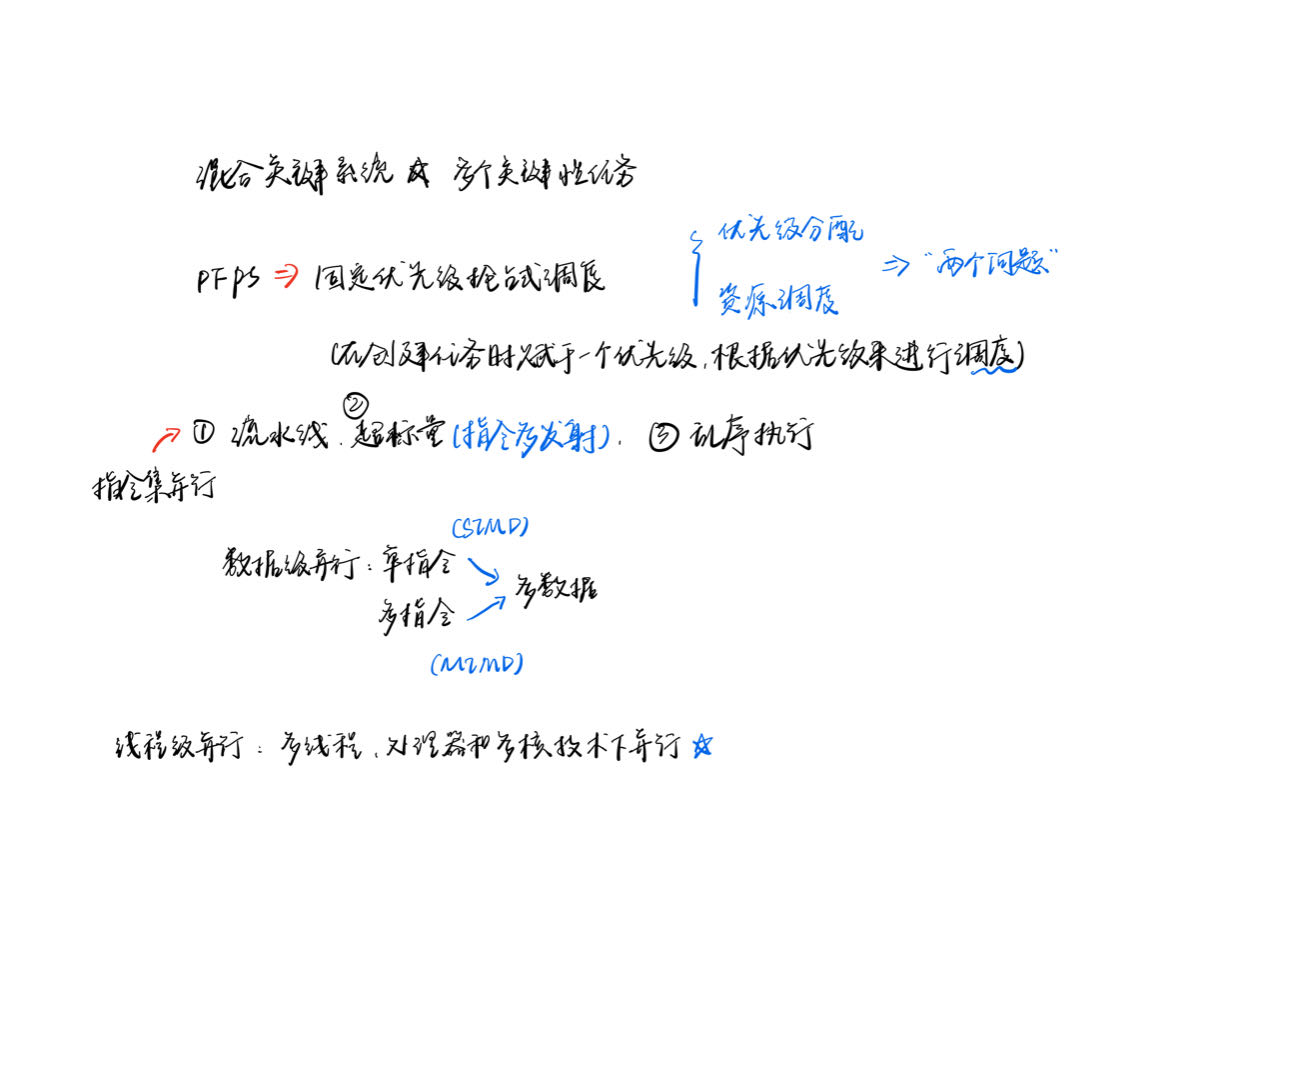 混合关键系统 ☆ 多个关键性任务
优先级分配
PFPS ⇒ 固定优先级抢占式调度
⇒ “两个问题”
资源调度
(在创建任务时赋于一个优先级,根据优先级来进行调度)
① 流水线、②超标量(指令多发射)、③ 乱序执行
指令集并行
(SIMD)
数据级并行:单指令
多数据
多指令
(MIMD)
线程级并行:多线程、处理器和多核技术下并行 ☆